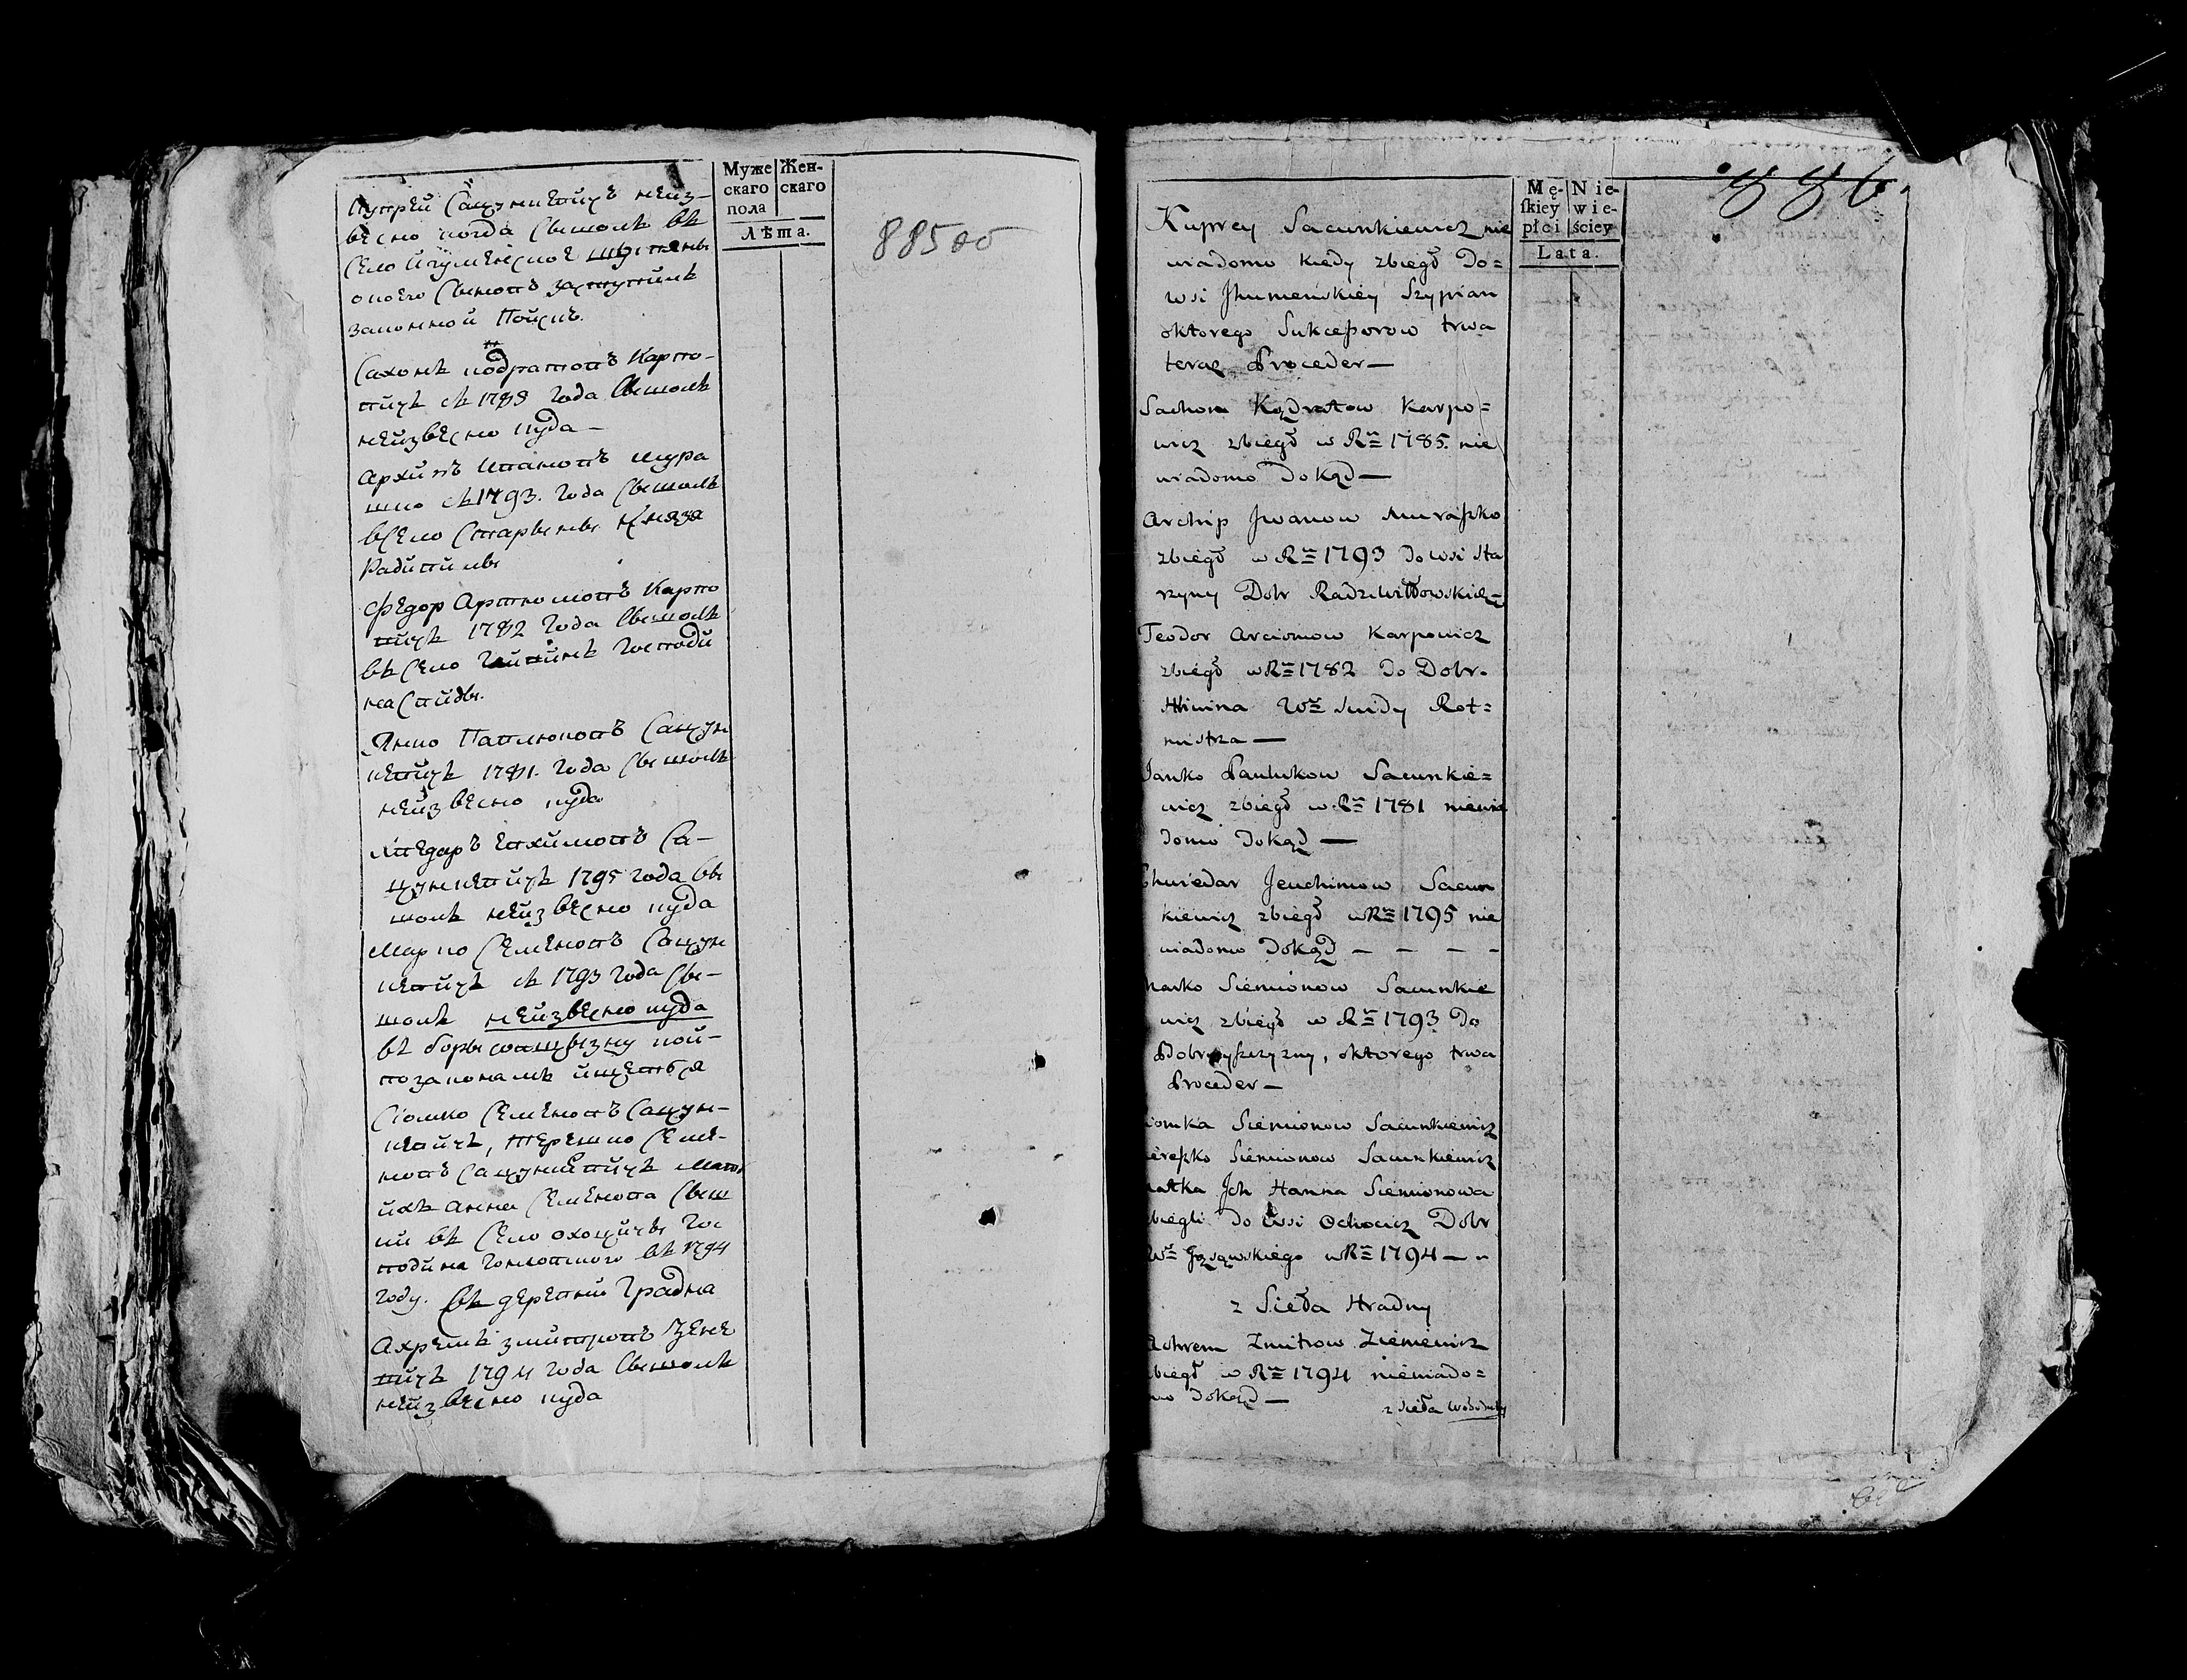 Муже
скаго
пола
Жен-
скаго
Лѣта.
885 об
Купрей Сацункевичъ неиз-
весно когда Сышолъ въ
Село
оного Сыновъ
законной Поискъ.
Сахонъ кодратовъ Карпо-
вичъ съ 1785 года Сышолъ
неизвесно куда —
Архипъ Ивановъ Мура
шко съ 1793. года Сышолъ
вСело Старыны Князя
Радивилы
Федор Артиомовъ Карпо
вичъ 1782 года Сышолъ
въ Село Гливинъ Господи
на Свиды.
Янко Павлюковъ Сацун
кевичъ 1781. года Сышолъ
неизвесно куда
Хведаръ Евхимовъ Са-
цункевичъ 1795 года Сы
шолъ неизвесно куда
Марко Семеновъ Сацун
кевичъ съ 1793 года Сы-
шолъ неизвесно куда
въ борысовщызну кой-
позаконамъ ищетъся
Сіомко Семеновъ Сацун-
кевичъ, Терешко Семе-
новъ Сацункевичъ Мать
ихъ анна Семенова Сыш
ли въ Село охоцичы Гос
подина въ 1794
году. Съ деревни Градна
Ахремъ змитровъ Зене
вичъ 1794 года Сышолъ
неизвесно куда
886.
Mę-
skiey
płci
Nie-
wie-
ściey
Lata.
Kuprey Sacunkiewicz nie
wiadomo kiedy zbiegł Do=
wsi Jhumeńskiey Szypian
oktorego Sukceßorow trwa
teraz Proceder —
Sachon Kądratow Karpo=
wicz zbiegł w Rͧ 1785. nie
wiadomo Dokąd —
Archip Jwanow Muraßko
zbiegł w Rͧ 1793 do wsi Sta
rzyny Dobr Radziwiłłowskich
Teodor Arciomow Karpowicz
zbiegł w Rͧ 1782 do Dobr.
Hliwina Wͧ Swidy Rot=
mistrza —
Janko Paulukow Sacunkie=
wicz zbiegł w Rͧ 1781 niewia
domo dokąd —
Chwiedar Jeuchimow Sacun
kiewicz zbiegł w Rͧ 1795 nie
wiadomo Dokąd — — — —
Marko Siemionow Sacunkie
wicz zbiegł w Rͧ 1793 Do
oktorego trwa
Proceder —
iomka Siemionow Sacunkiewicz
ereßko Siemionow Sacunkiewicz
atka Jch Hanna Siemionowa
biegli do wsi Ochocicz Dobr
w Rͧ 1794 —
z Sieła Hradny
Achrem Zmitrow Zieniewicz
biegł w Rͧ 1794 niewiado=
mo Dokąd —
z sieła